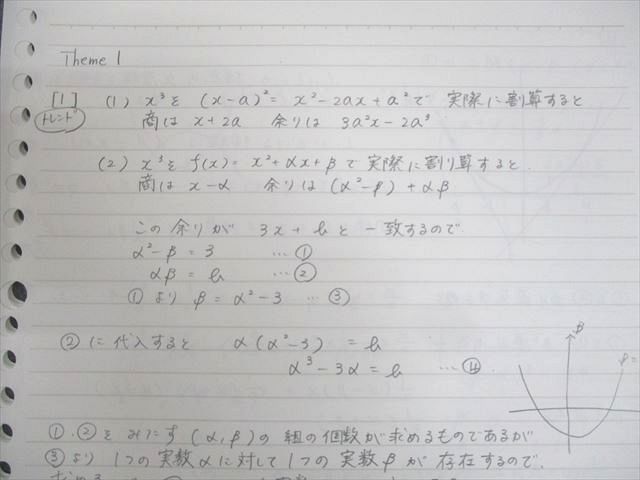 Theme 1
[1] (1) x³を (x-a)² = x²-2ax+a²で 実際に割算すると
トレンド 商は x+2a 余りは 3a²x-2a³
(2) x³を f(x)= x²+αx+β で 実際に割り算すると.
商は x-α 余りは (α²-β) + αβ
この 余りが 3x + b と 一致するので
α²-β = 3 …①
αβ = b …②
①より β = α²-3 …③
②に代入すると α(α²-3) = b
α³-3α = b …④
β
β=
①.②をみたす (α,β)の 組の個数が求めるものであるが
③より 1つの実数αに対して1つの実数βが存在するので.
求める